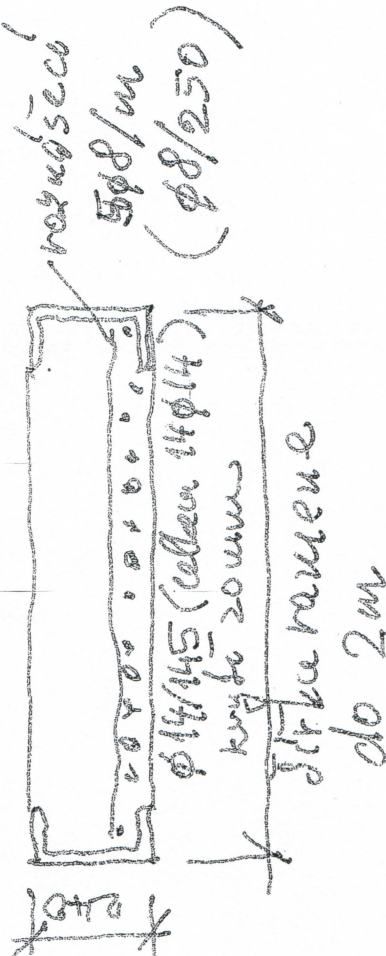 roznášecí
5φ8/m
(φ8/250)
φ14/145 (celkem 14φ14)
krytí 20mm
šířka ramene
do 2m